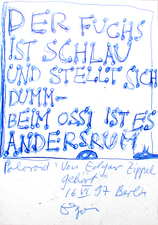 DER FUCHS
IST SCHLAU
UND STELLT SICH
DUMM-
BEIM OSSI IST ES
ANDERSRUM
Polaroid! Von Edgar Zippel
gehört"
16 VI 97 Berlin